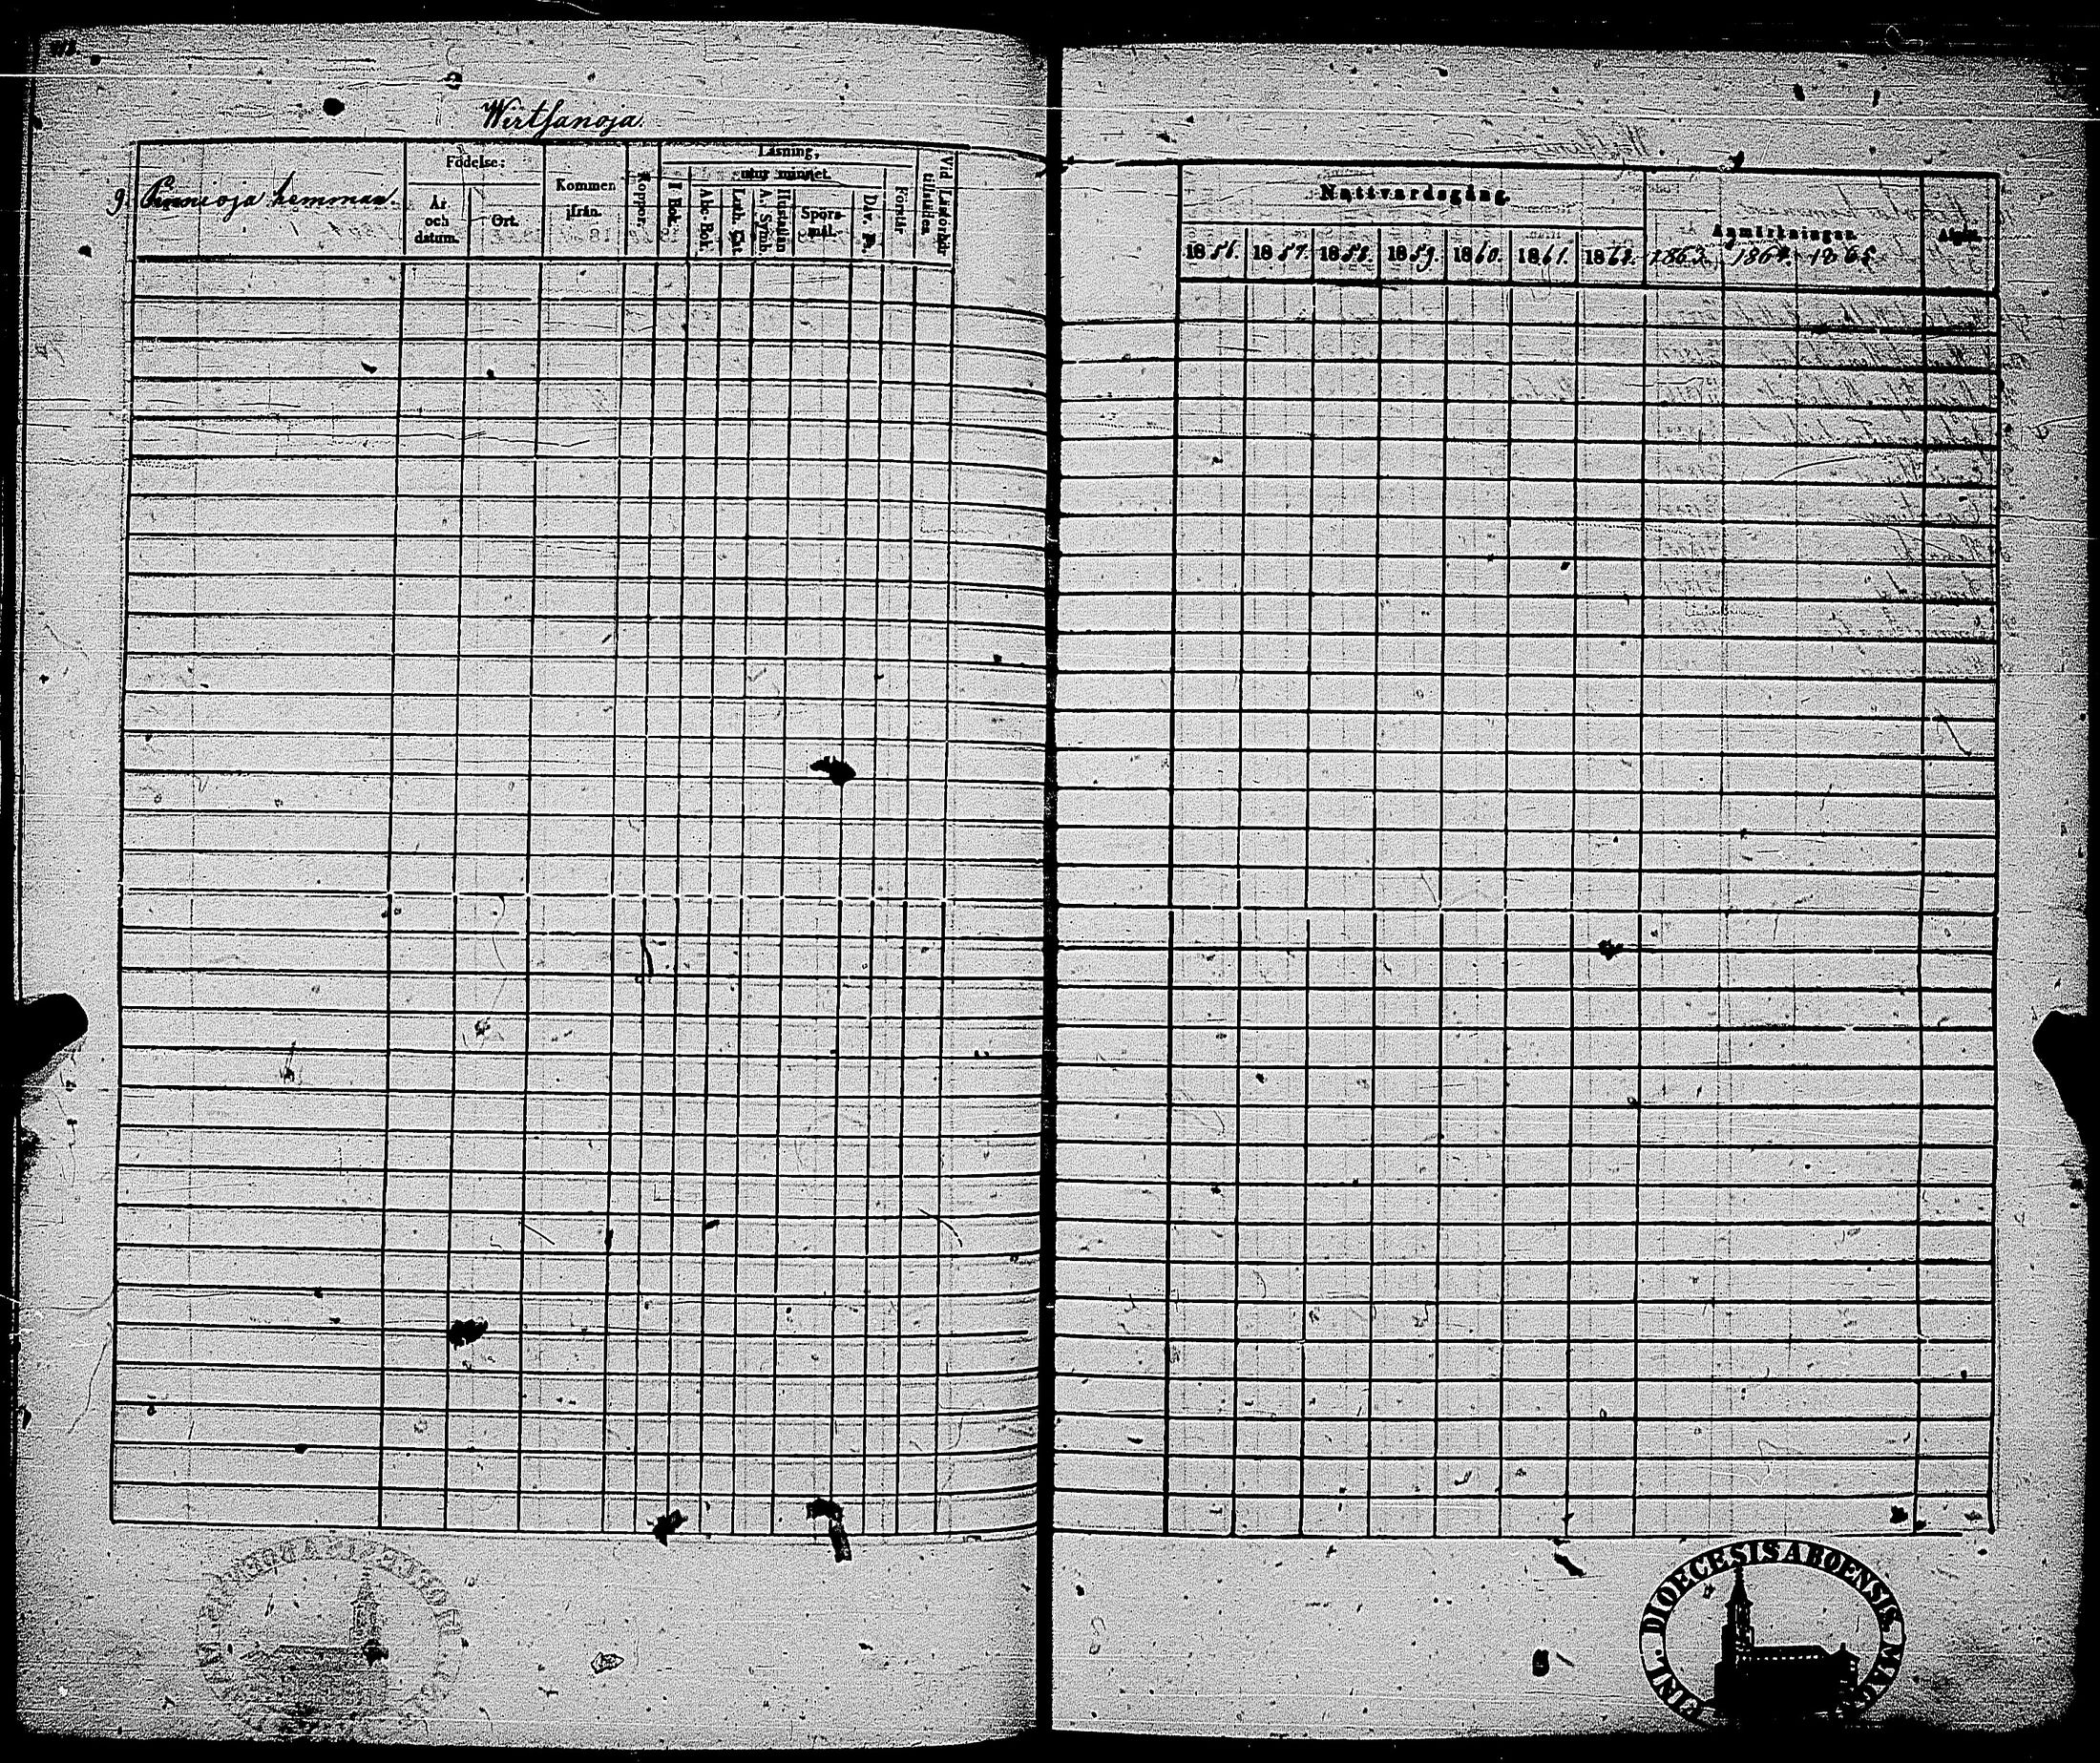 Wirtsanoja.
9. Pinnioja hemman.
Födelse:
År och datum.
Ort.
Kommen ifrån.
Koppor.
Läsning,
utur minnet.
I Bok.
Abc-Bok.
Luth. Cat.
A. Symb.
Hustaflan
Spörsmål.
Dav. Ps.
Förstår
Vid Läsförhör tillstädes.
Nattvardsgång.
Anmärkningar.
Afgått.
1856. 1857. 1858. 1859. 1860. 1861. 1862. 1863. 1864. 1865
FINL. DIOECESIS ABOENSIS MAG